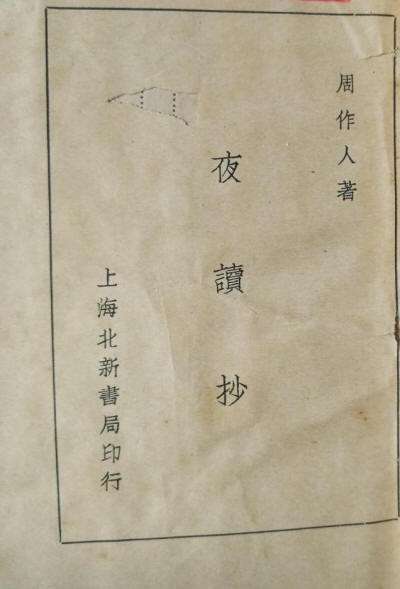 周作人著
夜讀抄
上海北新書局印行